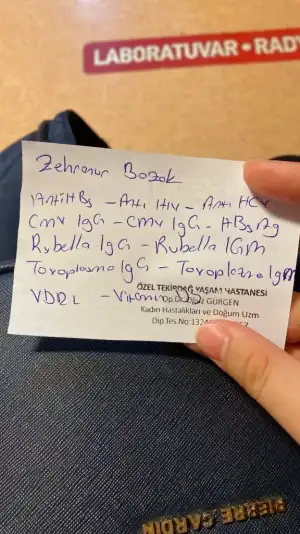 LABORATUVAR • RAD
Zehranur Bozok
Anti HBs - Anti HIV - Anti HCV
CMV IgG - CMV IgG - HBsAg
Rubella IgG - Rubella IGM
Toxoplasma IgG - Toxoplazma IgM
VDRL - Vitamin
ÖZEL TEKİRDAĞ YAŞAM HASTANESİ
Op.Dr. Oğuz GÜRGEN
Kadın Hastalıkları ve Doğum Uzm
Dip.Tes.No:132
PIERRE CARDIN